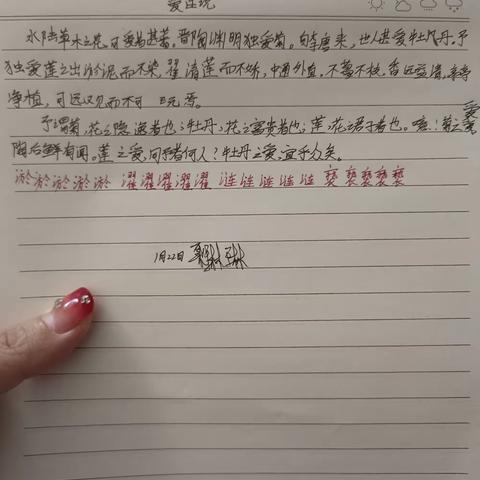 爱莲说
水陆草木之花,可爱者甚蕃。晋陶渊明独爱菊。自李唐来,世人甚爱牡丹。予
独爱莲之出淤泥而不染,濯清莲而不妖,中通外直,不蔓不枝,香远益清,亭亭
净植,可远观而不可 玩焉。
予谓菊,花之隐逸者也;牡丹,花之富贵者也;莲,花之君子者也。噫!菊之爱
陶后鲜有闻。莲之爱,同予者何人?牡丹之爱,宜乎众矣。
淤淤淤淤淤 濯濯濯濯濯 涟涟涟涟涟 亵亵亵亵亵
1月22日